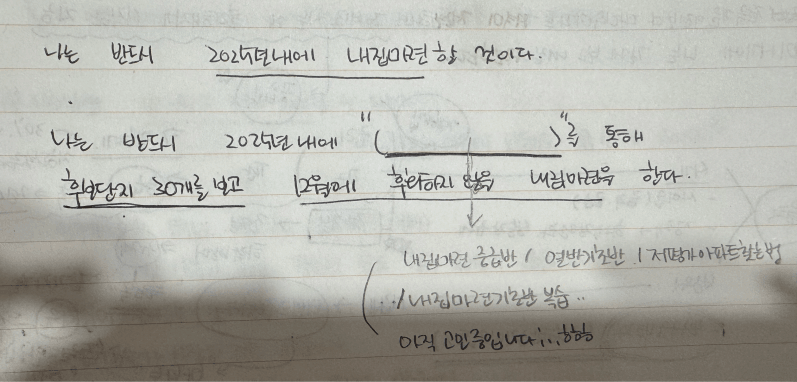 나는 반드시 2025년내에 내집마련 할 것이다.
나는 반드시 2025년 내에 "( )"를 통해
후보단지 30개를 보고 12월에 후회하지 않을 내집마련을 한다.
내집마련 중급반 / 열반기초반 / 저평가아파트찾는법
../내집마련기초반 복습..
아직 고민중입니다;.. 하하하